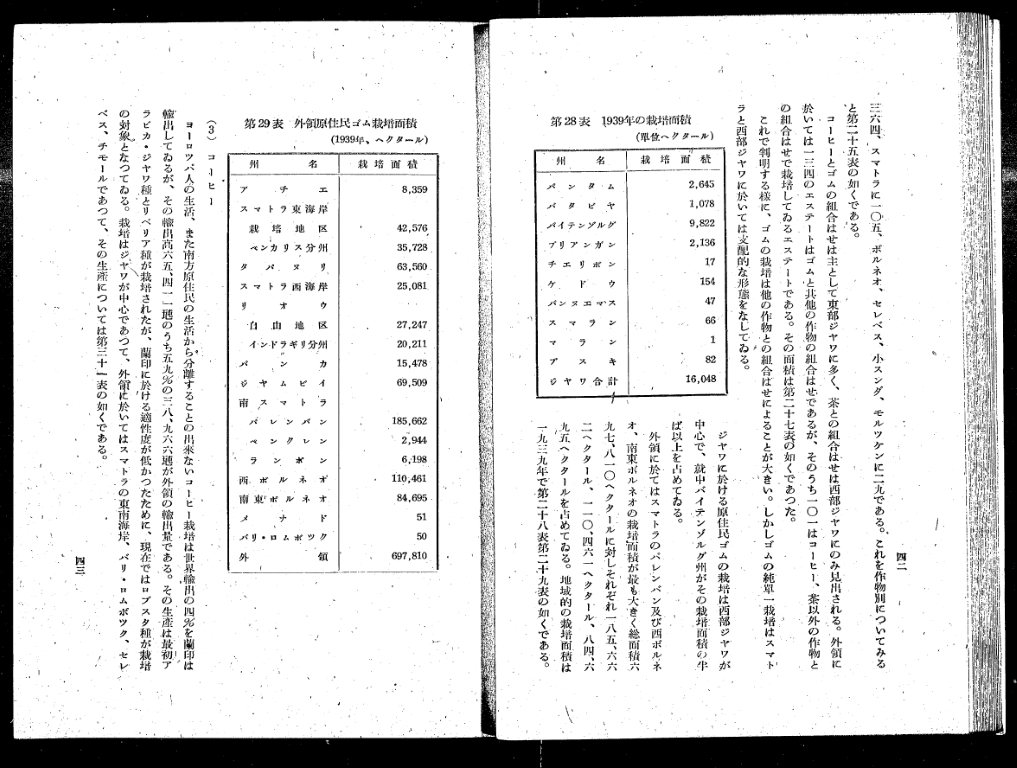 三六四、スマトラに一〇五、ボルネオ、セレベス、小スンダ、モルツケンに二九である。これを作物別についてみる
と第二十五表の如くである。
コーヒーとゴムの組合はせは主として東部ジヤワに多く、茶との組合はせは西部ジヤワにのみ見出される。外領に
於いては一三四のエステートはゴムと其他の作物の組合はせであるが、そのうち一〇一はコーヒー、茶以外の作物と
の組合はせで栽培してゐるエステートである。その面積は第二十七表の如くであつた。
これで判明する様に、ゴムの栽培は他の作物との組合はせによることが大きい。しかしゴムの純單一栽培はスマト
ラと西部ジヤワに於いては支配的な形態をなしてゐる。
第28表 1939年の栽培面積
(單位ヘクタール)
州名 栽培面積
バンタム 2,645
バタビヤ 1,078
バイテンゾルグ 9,822
プリアンガン 2,136
チエリボン 17
ケドウ 154
バンヌエマス 47
スマラン 66
マラン 1
ブスキ 82
ジヤワ合計 16,048
ジヤワに於ける原住民ゴムの栽培は西部ジヤワが
中心で、就中バイテンゾルグ州がその栽培面積の半
ば以上を占めてゐる。
外領に於てはスマトラのパレンバン及び西ボルネ
オ、南東ボルネオの栽培面積が最も大きく總面積六
九七、八一〇ヘクタールに対しそれぞれ一八五、六六
二ヘクタール、一一〇、四六一ヘクタール、八四、六
九五ヘクタールを占めてゐる。地域的の栽培面積は
一九三九年で第二十八表第二十九表の如くである。
四二
第29表 外領原住民ゴム栽培面積
(1939年、ヘクタール)
州名 栽培面積
アチエ 8,359
スマトラ東海岸
栽培地区 42,576
ベンカリス分州 35,728
タパヌリ 63,560
スマトラ西海岸 25,081
リオウ
自由地区 27,247
インドラギリ分州 20,211
バンカ 15,478
ジヤムビイ 69,509
南スマトラ
パレンバン 185,662
ベンクレン 2,944
ランポン 6,198
西ボルネオ 110,461
南東ボルネオ 84,695
メナド 51
バリ・ロムボツク 50
外領 697,810
(3) コーヒー
ヨーロツパ人の生活、また南方原住民の生活から分離することの出来ないコーヒー栽培は世界輸出の四%を蘭印は
輸出してゐるが、その輸出高六五、四一一瓲のうち五九%の三八、九六六瓲が外領の輸出量である。その生産は最初ア
ラビカ・ジヤワ種とリベリア種が栽培されたが、蘭印に於ける適性度が低かつたために、現在ではロブスタ種が栽培
の対象となつてゐる。栽培はジヤワが中心であつて、外領に於いてはスマトラの東南海岸、バリ・ロムボツク、セレ
ベス、チモールであつて、その生産については第三十一表の如くである。
四三